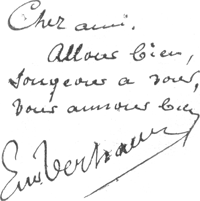 Cher ami.
Allons bien,
songeons à vous,
vous aimons bien
Em Verhaeren